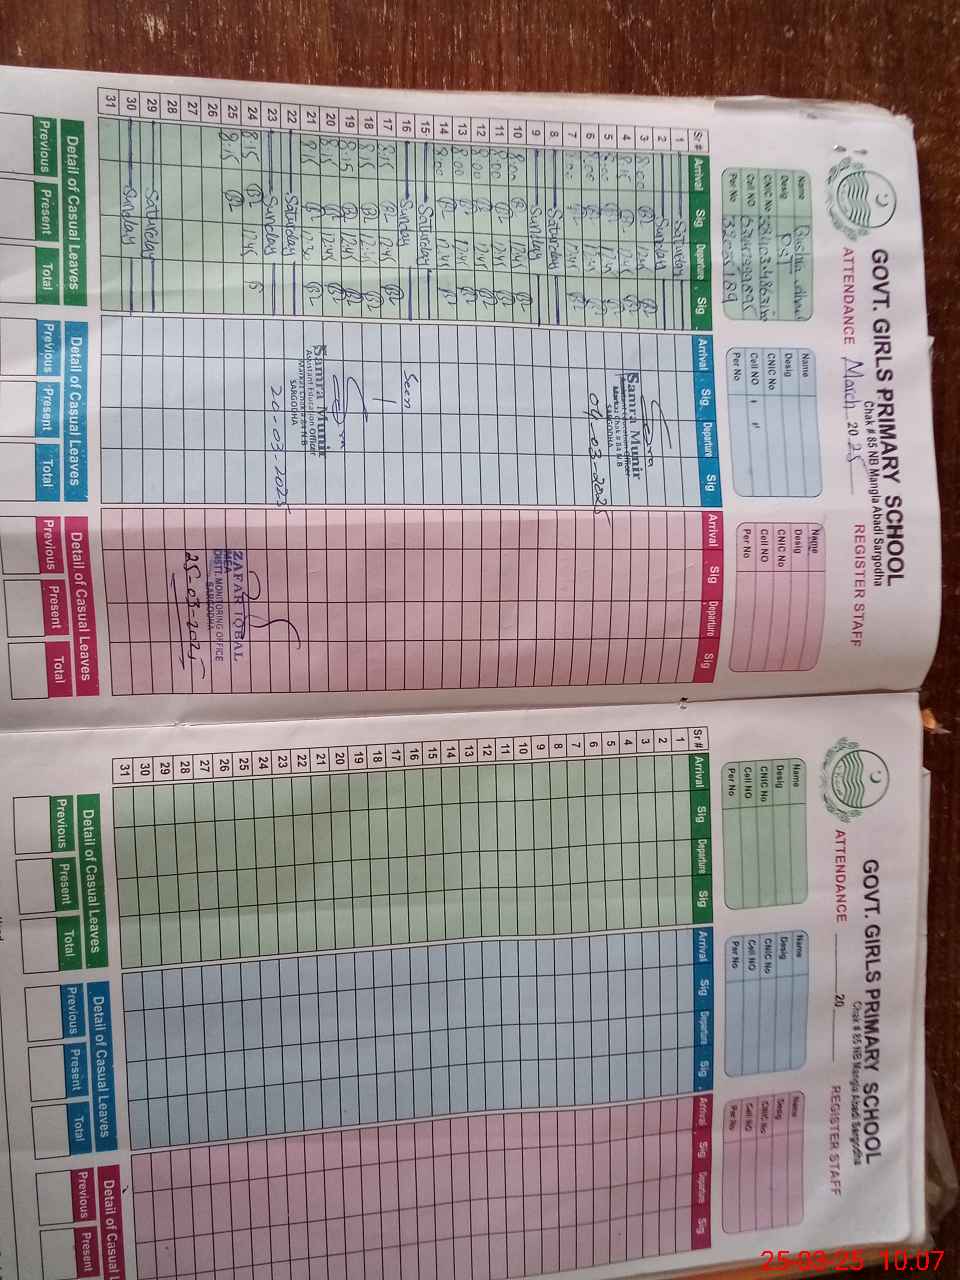 GOVT. GIRLS PRIMARY SCHOOL
Chak # 85 NB Mangla Abadi Sargodha
ATTENDANCE March 2025 REGISTER STAFF
Name
Desig
CNIC No
Cell NO
Per No
Name
Desig
CNIC No
Cell NO
Per No
Name
Desig
CNIC No
Cell NO
Per No
Sr# Arrival Sig Departure Sig Arrival Sig. Departure Sig Arrival Sig Departure Sig
1 Saturday
2 Sunday
3 8:00 12:45
4 8:15 12:45
5 8:00 12:45
6 8:00 12:45
7 8:00 12:45
8 Saturday
9 Sunday
10 8:00 12:45
11 8:00 12:45
12 8:00 12:45
13 8:00 12:45
14 8:00 12:45
15 Saturday
16 Sunday
17 8:15 12:45
18 8:15 12:45
19 8:15 12:45
20 8:15 12:45
21 8:15 12:30
22 Saturday
23 Sunday
24 8:15 12:45
25 8:15
26
27
28
29 Saturday
30 Sunday
31
Samra Munir
Assistant Education Officer
Markaz Chak # 84 N.B
04-03-2025
Seen
Samra Munir
Assistant Education Officer
Markaz Chak # 84 N.B
SARGODHA
20-03-2025
ZAFAR IQBAL
MEA
DISTT. MONITORING OFFICE
SARGODHA
25-03-2025
Detail of Casual Leaves
Previous Present Total
Detail of Casual Leaves
Previous Present Total
Detail of Casual Leaves
Previous Present Total
GOVT. GIRLS PRIMARY SCHOOL
Chak # 85 NB Mangla Abadi Sargodha
ATTENDANCE 20 REGISTER STAFF
Name
Desig
CNIC No
Cell NO
Per No
Name
Desig
CNIC No
Cell NO
Per No
Name
Desig
CNIC No
Cell NO
Per No
Sr# Arrival Sig Departure Sig Arrival Sig Departure Sig Arrival Sig Departure Sig
1
2
3
4
5
6
7
8
9
10
11
12
13
14
15
16
17
18
19
20
21
22
23
24
25
26
27
28
29
30
31
Detail of Casual Leaves
Previous Present Total
Detail of Casual Leaves
Previous Present Total
Detail of Casual L
Previous Present
25-03-25 10.07